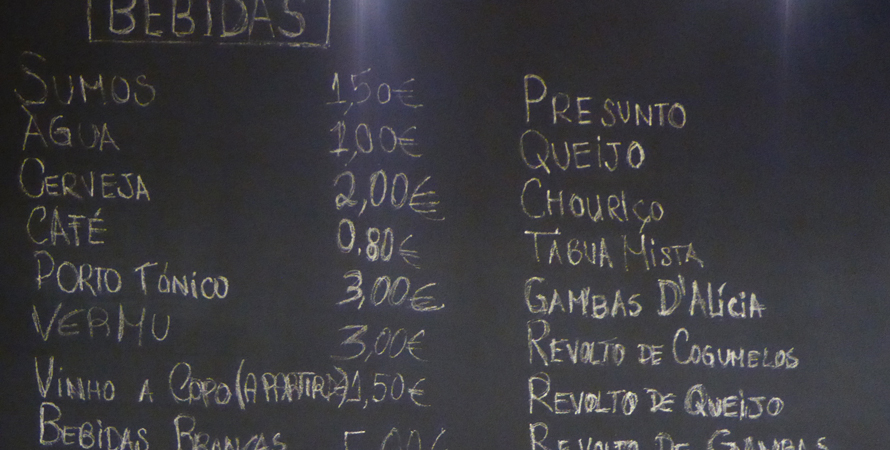 BEBIDAS
SUMOS 1,50€
ÀGUA 1,00€
CERVEJA 2,00€
CAFÉ 0.80€
PORTO TÓNICO 3,00€
VERMU 3,00€
VINHO A COPO (A PARTIR) 1,50€
BEBIDAS BRANCAS 5,00€
PRESUNTO
QUEIJO
CHOURIÇO
TÁBUA MISTA
GAMBAS D'ALÍCIA
REVOLTO DE COGUMELOS
REVOLTO DE QUEIJO
REVOLTO DE GAMBAS